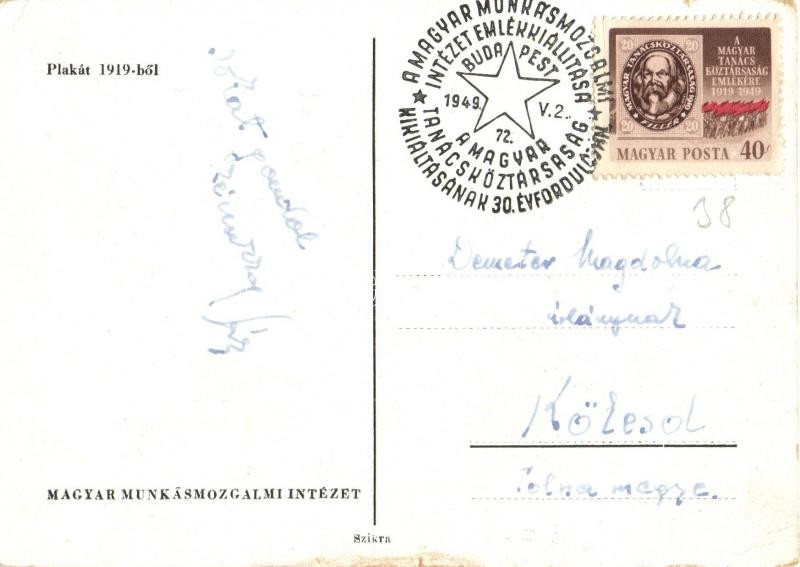 Plakát 1919-ből
MAGYAR MUNKÁSMOZGALMI INTÉZET
Szikra
A MAGYAR MUNKÁSMOZGALMI
INTÉZET EMLÉKKIÁLLITÁSA
BUDAPEST
1949. V. 2.
72.
A MAGYAR
TANÁCSKÖZTÁRSASÁG
KIKIÁLTÁSÁNAK 30. ÉVFORDULÓ
20 20
MAGYAR TANÁCSKÖZTÁRSASÁG
20 20
A
MAGYAR
TANÁCS
KÖZTÁRSASÁG
EMLÉKÉRE
1919-1949
MAGYAR POSTA 40
38
Demeter Magdolna
Kölesd
Tolna megye.